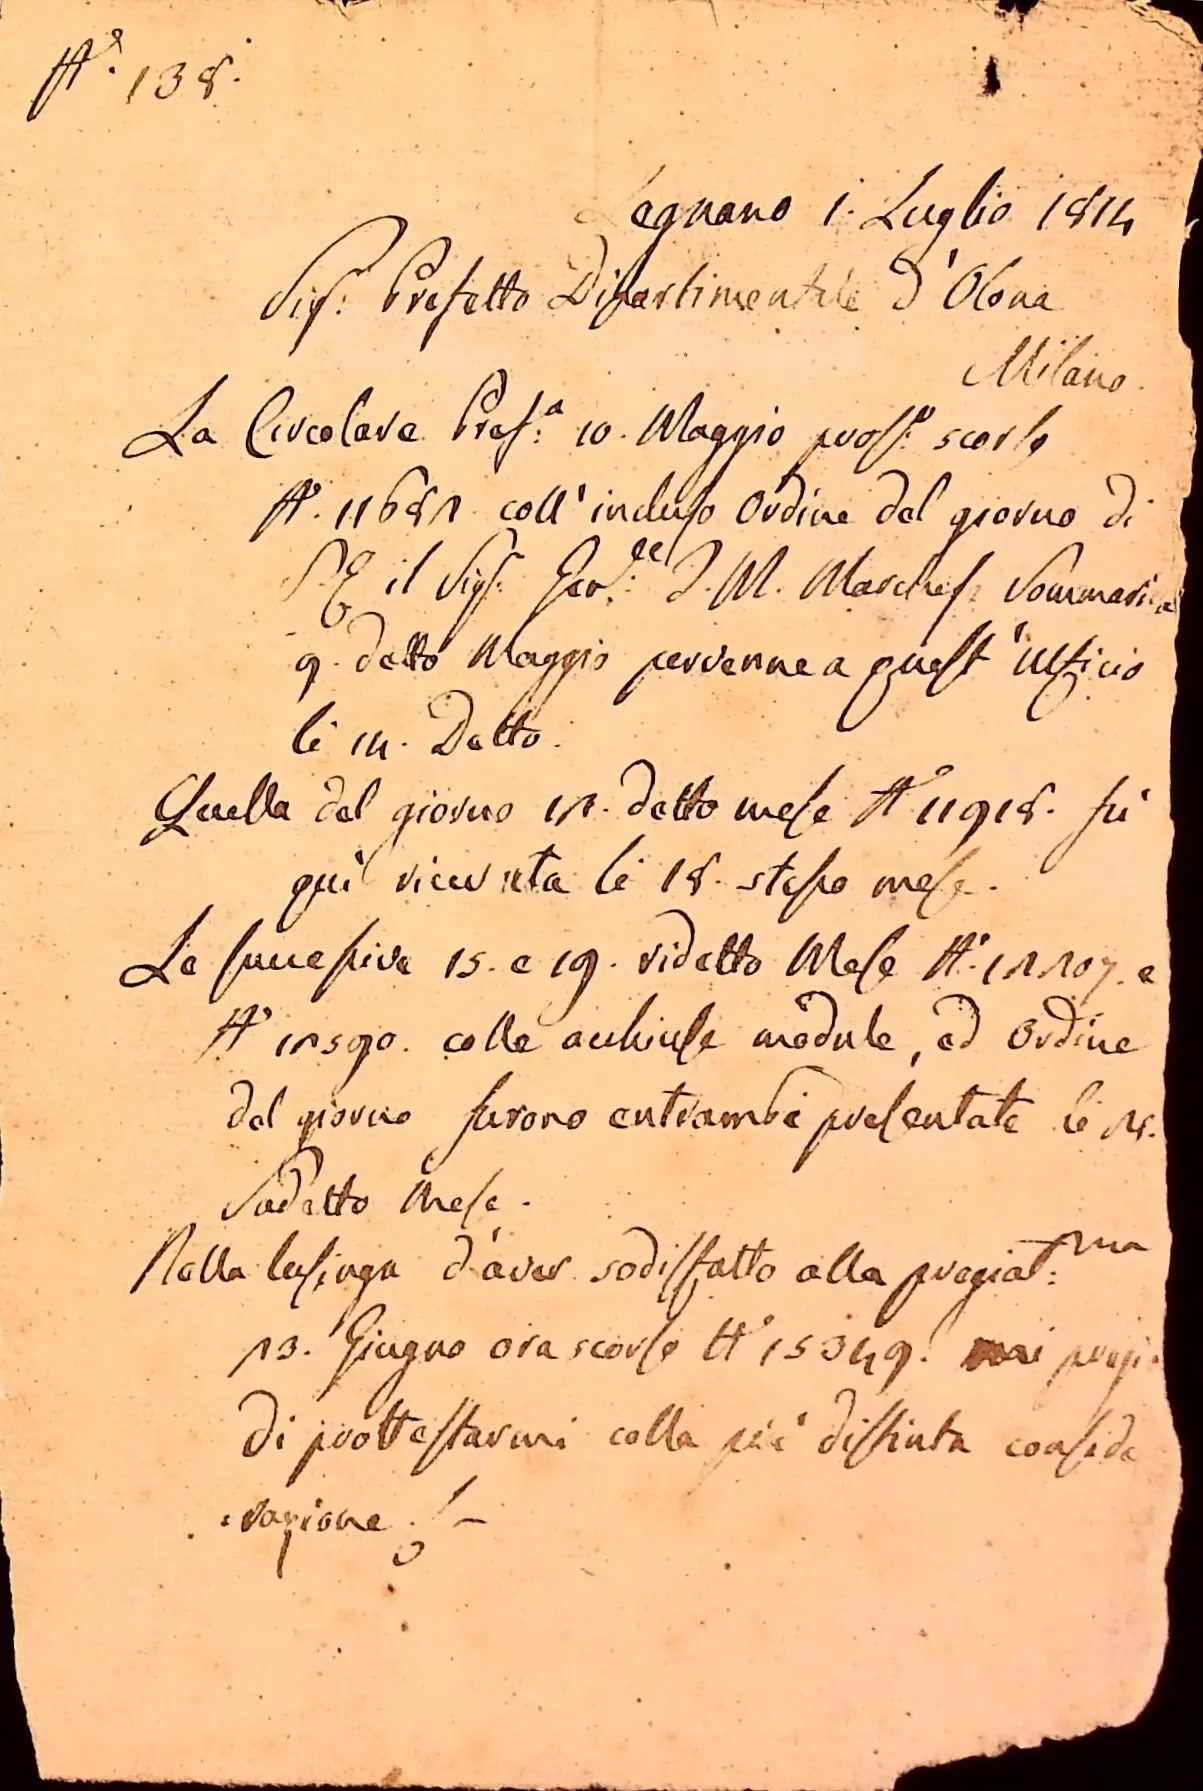 N.° 138.
Legnano 1. Luglio 1814
Sigr. Prefetto Dipartimentale d'Olona
Milano.
La Circolare Pref.a 10. Maggio pross.o scorso
N.° 11682 coll'incluso Ordine del giorno di
S.E. il Sigr. T. M. Marches. Sommariva
9. detto Maggio pervenne a quest'Ufficio
li 14. Detto.
Quella del giorno 12. detto mese N.° 11918. fù
quì ricevuta li 18. stesso mese.
Le successive 15. e 19. ridetto Mese N.° 12207. e
N.° 12590. colle acchiuse module, ed Ordine
del giorno furono entrambe presentate li
Sudetto Mese.
Nella lusinga d'aver sodisfatto alla pregiat.ma
23. Giugno ora scorso N.° 15349.
di prottestarmi colla più distinta conside
=razione